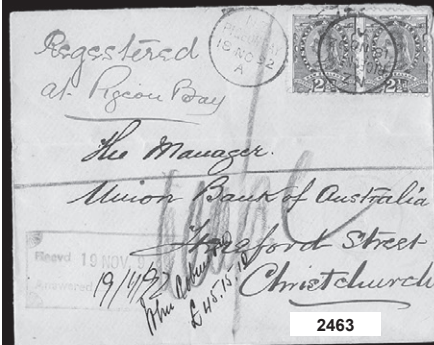 Registered
at Pigeon Bay
PIGEON BAY
18 NO 92
A
2D 2D
The Manager.
Union Bank of Australia
Hereford Street
Christchurch
Recvd 19 NOV. 9
Answered
19/11/92
John
£45.15.10
2463